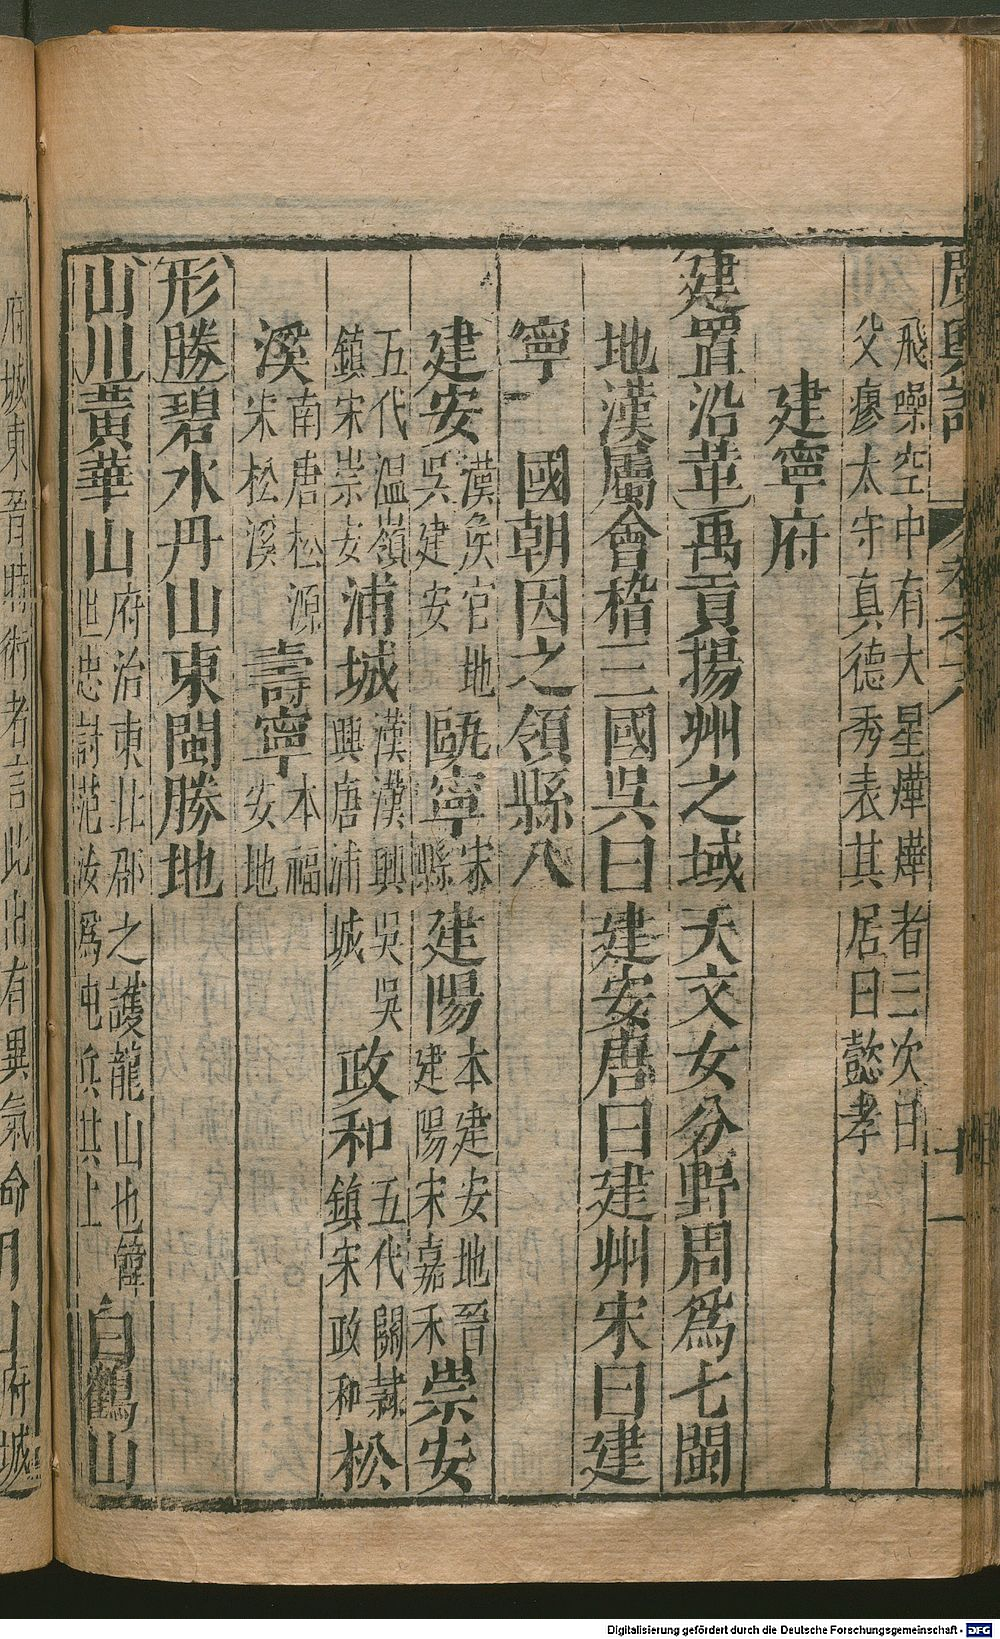 廣輿記
卷之十八
十一
飛噪空中有大星燁燁者三次日
父瘳太守真德秀表其居曰懿孝
建寧府
建置沿革禹貢揚州之域天文女分野周爲七閩
地漢屬會稽三國吳曰建安唐曰建州宋曰建
寧 國朝因之領縣八
建安漢矦官地吳建安甌寧宋縣建陽本建安地晉建陽宋嘉禾崇安
五代温嶺鎮宋崇安浦城漢漢興吳吳興唐浦城政和五代關隷鎮宋政和松
溪南唐松源宋松溪壽寧本福安地
形勝碧水丹山東閩勝地
山川黃華山府治東北郡之護龍山也韓世忠討范汝爲屯兵其上白鶴山
府城東晉時術者言此山有異氣命
山府城
Digitalisierung gefördert durch die Deutsche Forschungsgemeinschaft - DFG